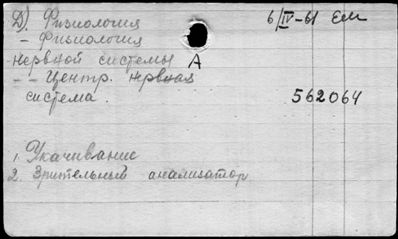 Д) Физиология
6/IV-61 Ем
- Физиология
нервной системы А
- - Центр. нервная
система.
562064
1. Укачивание
2. Зрительный анализатор